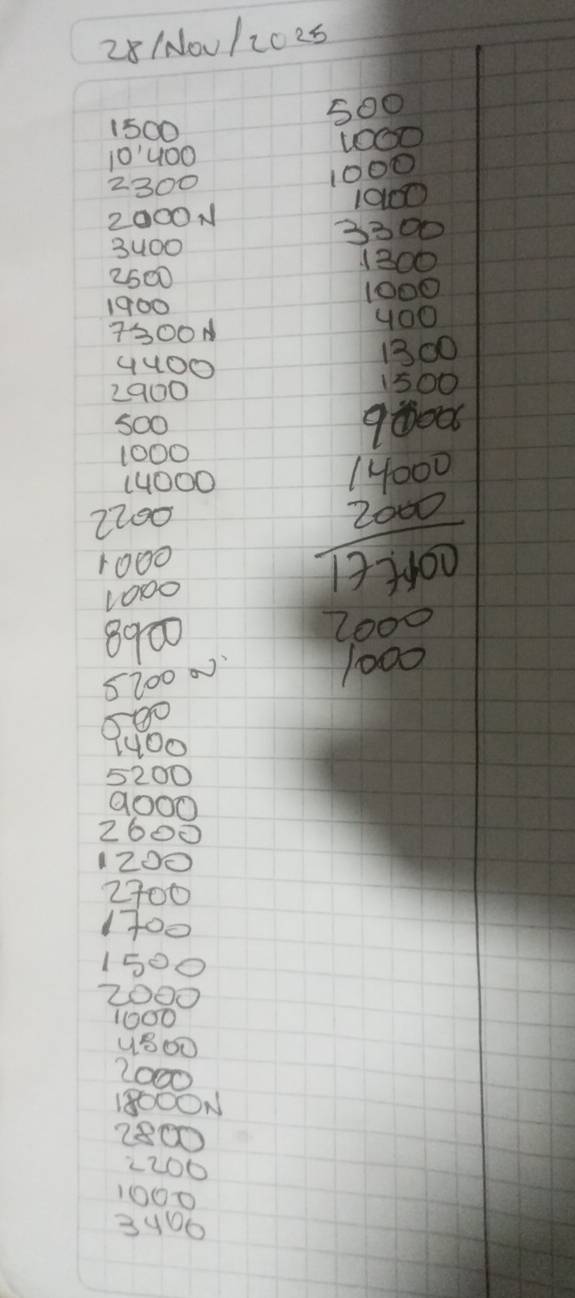 28/Nov/2025
1500
10'400
2300
2000N
3400
2500
1900
7300N
4400
2900
500
1000
14000
2200
1000
1000
8900
5200 N
500
1400
5200
9000
2600
1200
2700
1700
1500
2000
1000
4500
2000
18000N
2800
2200
1000
3400
500
1000
1000
1900
3300
1300
1000
400
1300
1500
14000
2000
2000
1000